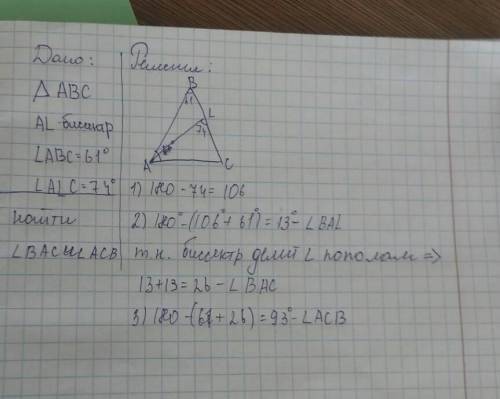 Дано:
Решение:
△ ABC
AL-биссектр
∠ABC=61°
∠ALC=74°
найти
∠BAC и ∠ACB
B
61
L
74
A
C
1) 180-74=106
2) 180°-(106°+61°)=13°-∠BAL
т.к. биссектр делит ∠ пополам =>
13+13=26-∠BAC
3) 180-(61+26)=93°-∠ACB